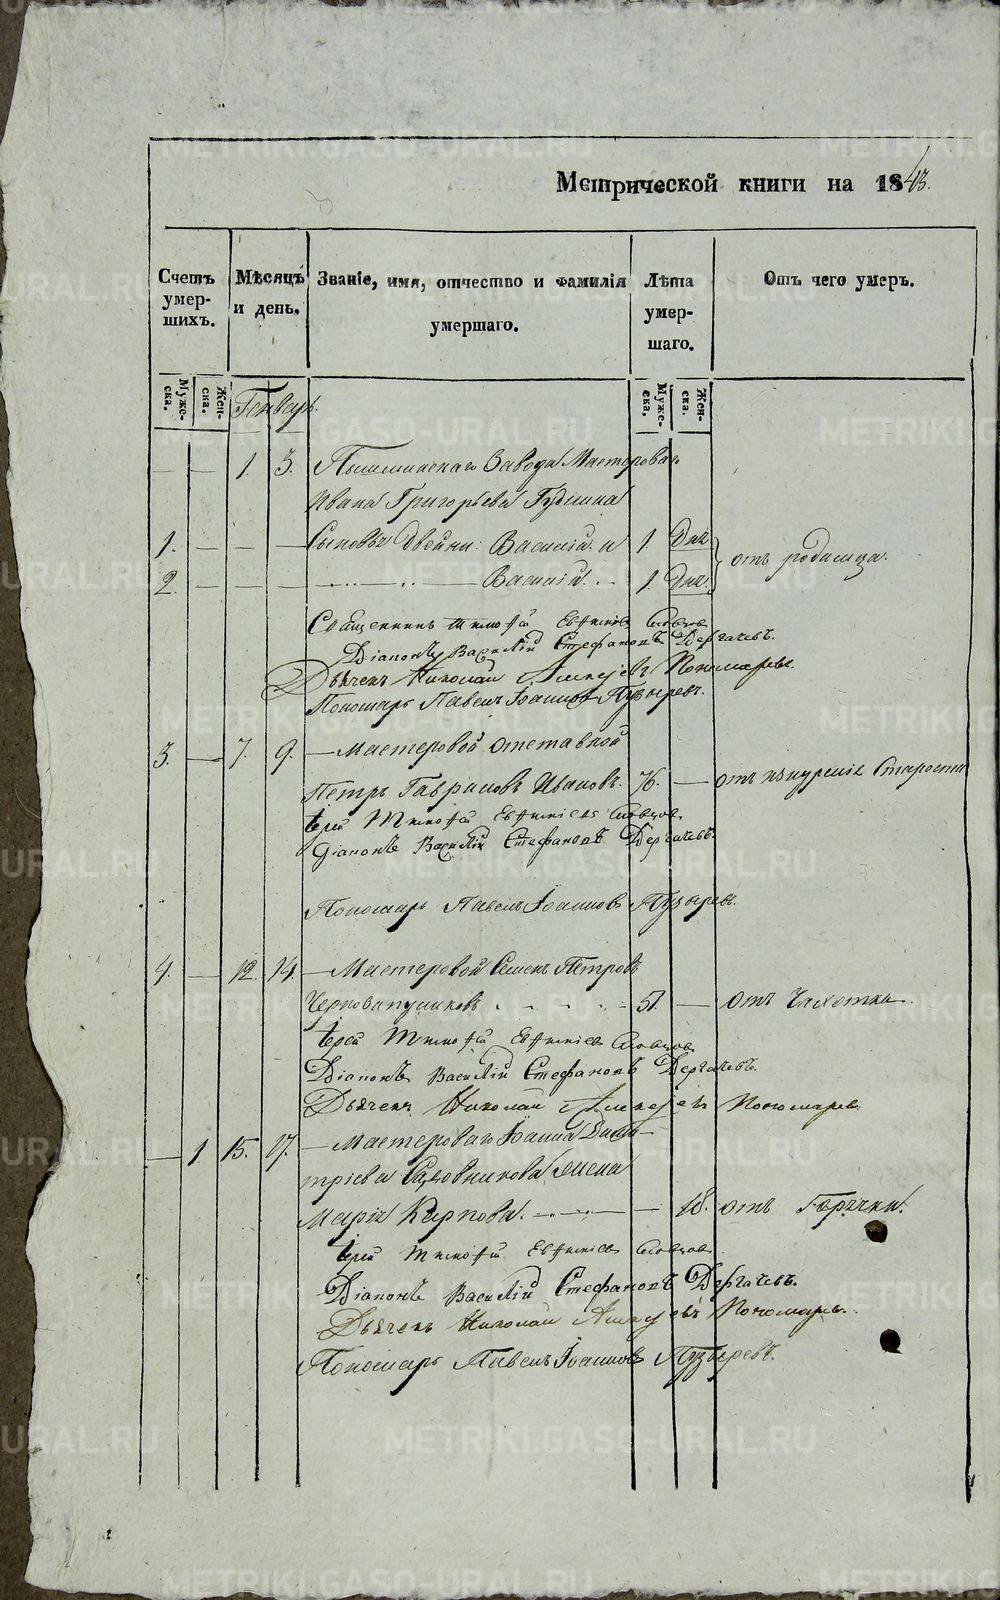 Метрической книги на 1843.
Счетъ умер-шихъ.
Мѣсяцъ и день.
Званіе, имя, отчество и фамилія умершаго.
Лѣта умер-шаго.
Отъ чего умеръ.
Муже-ска.
Жен-ска.
Генварь.
Муже-ска.
Жен-ска.
1. 3. Пышминскаго Завода Мастероваго
Ивана Григорьева
1. Сыновья двойни: Василій и 1. Дня.
отъ родимца.
2. Василій. 1. Дня.
Священникъ Тимофѣй Евфиміевъ Словцов
Діаконъ Василій Стефановъ Дергачевъ.
Дьячекъ Николай Алексѣевъ Пономаревъ
Пономарь Павелъ Іоанновъ Пузыревъ.
3. 7. 9. Мастеровой отставной
Петръ Гавриловъ Ивановъ. 76. отъ изнуренія Старости
Іерей Тимофѣй Евфиміевъ Словцов.
Діаконъ Василій Стефановъ Дергачевъ.
Пономарь Павелъ Іоанновъ Пузыревъ.
4. 12. 14. Мастеровой Семенъ Петровъ
51. отъ Чахотки
Іерей Тимофѣй Евфиміевъ Словцов
Діаконъ Василій Стефановъ Дергачевъ.
Дьячекъ Николай Алексѣевъ Пономаревъ
1. 15. 17. Мастероваго Іоанна Дими-
тріева Садовникова жена
Марія Карпова. 18. отъ Горячки.
Іерей Тимофѣй Евфиміевъ Словцов
Діаконъ Василій Стефановъ Дергачевъ.
Дьячекъ Николай Алексѣевъ Пономаревъ.
Пономарь Павелъ Іоанновъ Пузыревъ.
METRIKI.GASO-URAL.RU